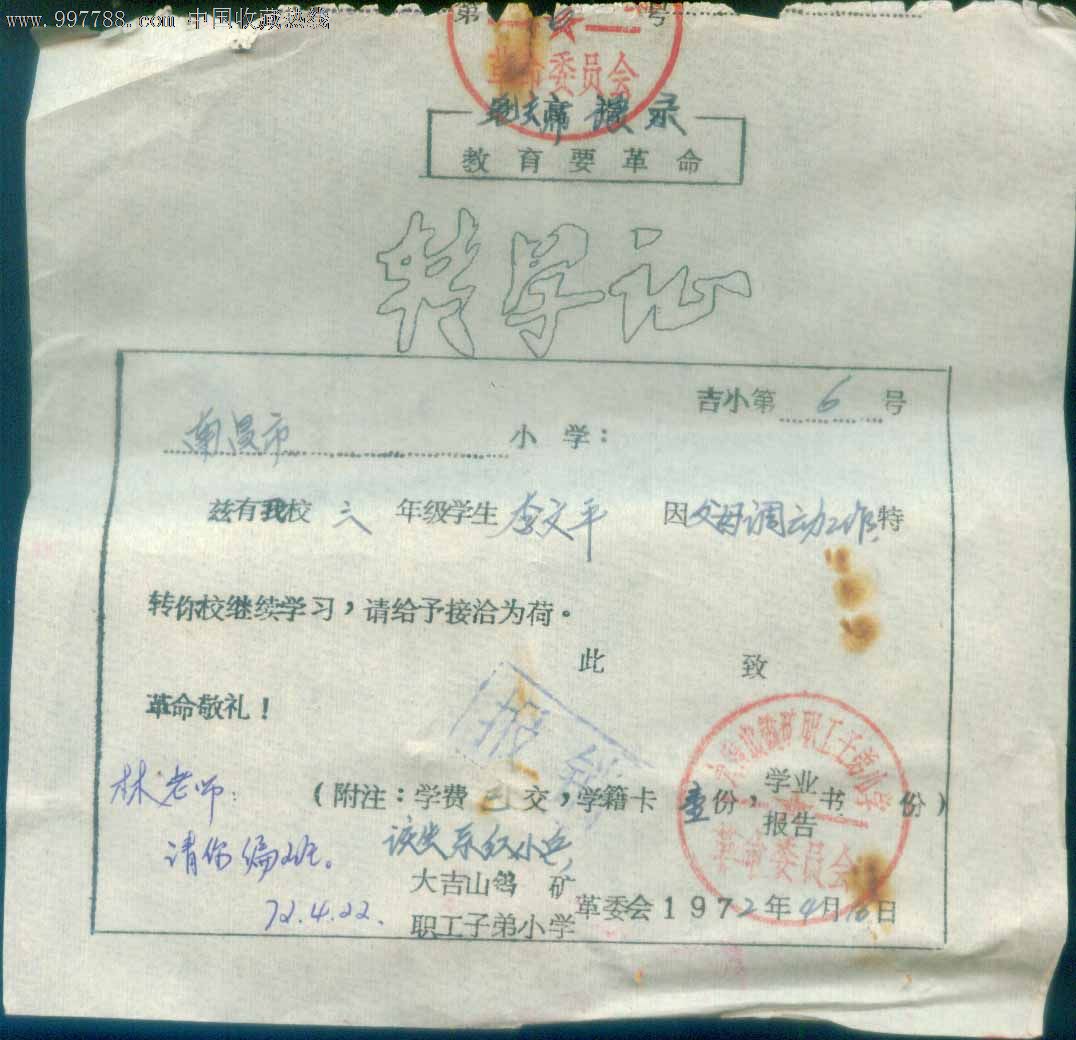 www.997788.com 中国收藏热线
第 号
革命委员会
教育要革命
转学证
吉小第 6 号
南昌市 小学：
兹有我校 六 年级学生 李文平 因父母调动工作特
转你校继续学习，请给予接洽为荷。
此 致
革命敬礼！
（附注：学费已交，学籍卡壹份，学业报告书 份）
该生系红小兵
林老师：
请你编班。
72.4.22.
大吉山钨矿
职工子弟小学
革委会 1972年4月 日
革命委员会